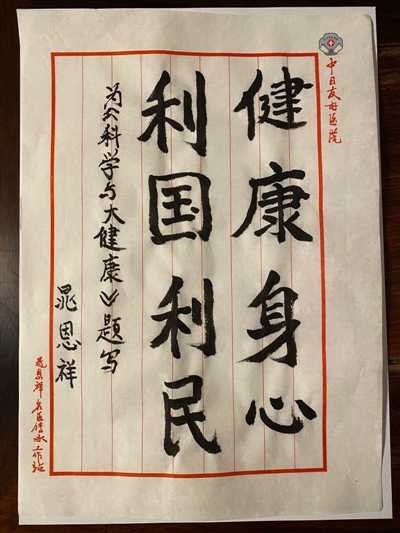 中日友好医院
健康身心
利国利民
为《科学与大健康》题写
晁恩祥
晁恩祥名医传承工作站